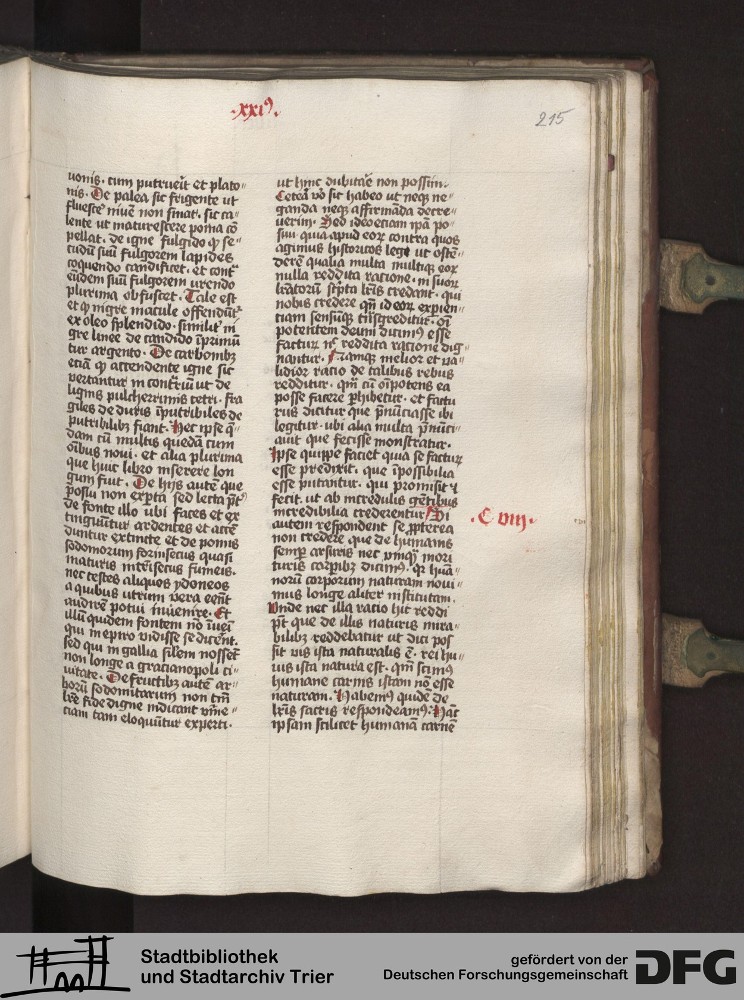 ·xxiꝰ·
215
uonis· cum putrueīt et plato〃
nis· De palea sic frigente ut
fluesce͛ niuē non sinat· sic ca〃
lente ut maturescere poma cō
pellat· de igne fulgido ꝙ se〃
cūdū suū fulgorem lapides
coquendo candificet· et cont͛
eūdem suū fulgorem urendo
plurima obfuscet· Tale est
et ꝙ nigre macule offendūt͛
ex oleo splendido· similit͛ ni
gre linee de candido īprimū
tur argento· De carbonibꝫ
eciā ꝙ accendente igne sic
vertantur in cont͛riū ut de
lignis pulcherrimis tetri· fra
giles de duris īputribiles de
putribilibꝫ fiant· Hec ipse q̄〃
dam cū multis quedā cum
om̄ibus noui· et alia plurima
que huic libro inserere lon
gum fuit· De hijs autē que
posui non expta sed lecta pt͛
de fonte illo ubi faces et ex
tinguūtur ardentes et accē
duntur extincte et de pomis
sodomorum forinsecus quasi
maturis int͛īsecus fumeis·
nec testes aliquos ydoneos
a quibus utrum vera eēnt
audirē potui inuenire· Et
illū quidem fontem nō īuēi
qui in epiro vidisse se dicēnt·
sed qui in gallia silem nossēt
non longe a gracianopoli ci〃
uitate· De fructibꝫ autē ar〃
borū sodomitarum non tm̄
lr̄e fide digne indicant vn̄e〃
ciam tam eloquūtur experti·
ut hinc dubitar̄e non possim·
Cetera v̊o sic habeo ut neqꝫ ne〃
ganda neqꝫ affirmāda decre〃
uerim· Sed ideo eciam ip̄a po〃
sui· quia apud eoꝝ contra quos
agimus historicos legi ut ostē〃
derē qualia multa multiqꝫ eoꝝ
nulla reddita racione· in suoꝝ
lr̄atorū sc̄pta lr̄is credant· qui
nobis credere qn̄ id eoꝝ expien〃
ciam sensūqꝫ tn̄sgreditur· om̄
potentem deum dicimꝰ esse
facturꝫ nꝭ reddita racione dig〃
nantur· Namqꝫ melior et va〃
lidior racio de talibus rebus
redditur· qm̄ cū om̄ipotens ea
posse facere ꝓhibetur· et factu
rus dicitur que p̄nūciasse ibi
legitur· ubi alia multa p̄nūci〃
auit que fecisse monstratur·
Ipse quippe faciet quia se facturꝫ
esse predixit· que īpossibilia
esse putantur· qui promisit ⁊
fecit ut ab incredulis gētibus
incredibilia crederentur· Si
autem respondent se ꝓpterea
non credere que de humanis
semꝑ arsuris nec vnqꝫ mori
turis corꝑibꝫ dicimꝰ· qꝛ huā〃
norū corporum naturam noui〃
mus longe aliter institutam·
Vnde nec illa racio hic reddi
pt͛ que de illis naturis mira〃
bilibꝫ reddebatur ut dici pos
sit vis ista naturalis ē· rei hu〃
ius ista natura est· qm̄ scimꝰ
humane carnis istam nō esse
naturam· Habemꝰ quidē de
lr̄is sacris respondeamꝰ· Hāc
ipsam scilicet humanā carnē
·C viij·
Stadtbibliothek
und Stadtarchiv Trier
gefördert von der
Deutschen Forschungsgemeinschaft
DFG